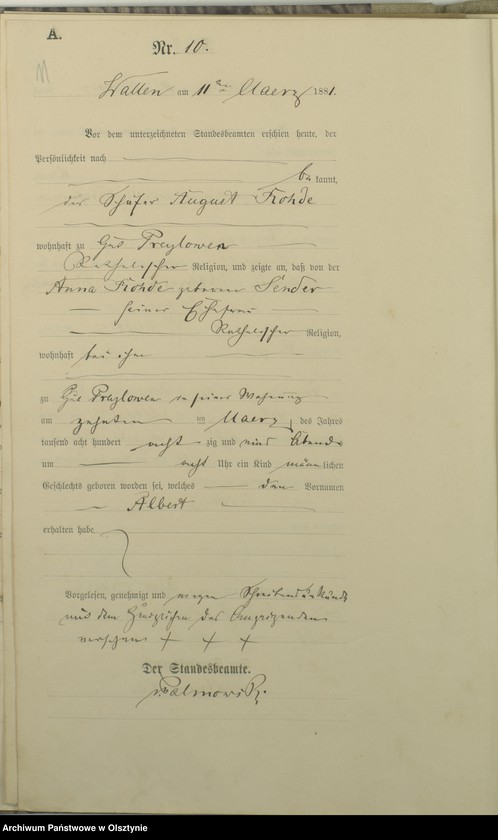 A.
Nr. 10.
am 11ten Maerz 1881.
Vor dem unterzeichneten Standesbeamten erschien heute, der
Persönlichkeit nach
be kannt,
der Schäfer August Rohde
wohnhaft zu Gut Preylowen
Katholischer Religion, und zeigte an, daß von der
Anna Rohde geborenen Sender
seiner Ehefrau
Katholischer Religion,
wohnhaft bei ihm
zu Gut Preylowen in seiner Wohnung
am zehnten ten Maerz des Jahres
tausend acht hundert acht zig und eins Abends
um acht Uhr ein Kind männlichen
Geschlechts geboren worden sei, welches den Vornamen
Albert
erhalten habe.
Vorgelesen, genehmigt und wegen Schreibensunkunde
mit dem Handzeichen des Anzeigenden
versehen + + +
Der Standesbeamte.
Palmowski
Archiwum Państwowe w Olsztynie